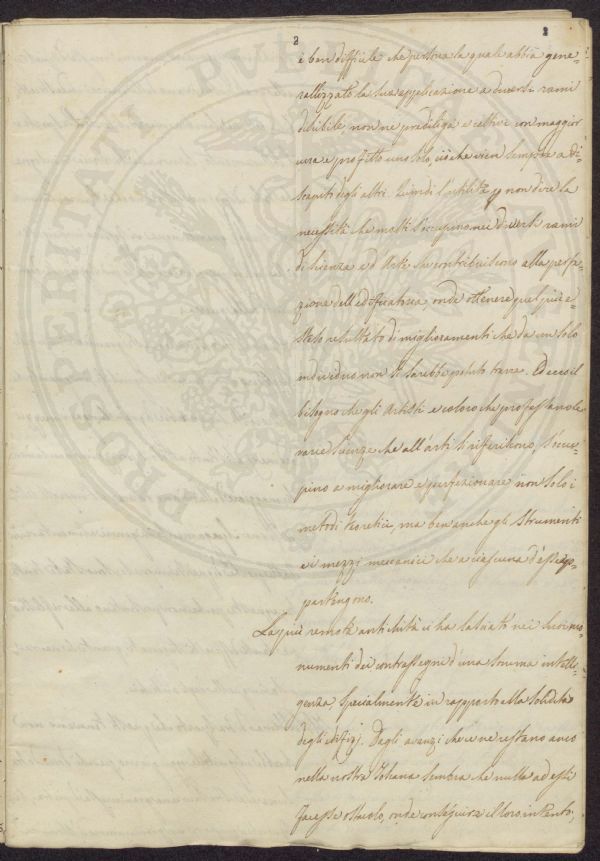 2
2
è ben difficile che persona la quale abbia gene=
ralizzato la sua applicazione a diversi rami
dello scibile, non ne prediliga e coltivi con maggior
cura e profitto uno solo, ciò che viene sempre a di=
scapito degli altri. Quindi l'utilità p non dire la
necessità che molti s'occupino nei diversi rami
di Scienza ed Arte che contribuiscono alla perfe=
zione dell'edificatoria, onde ottenere quel più e=
steso resultato di miglioramenti che da un solo
individuo non si sarebbe potuto trarre. Ed ecco il
bisogno che gli Artisti e coloro che professano le
varie Scienze che all'arti si riferiscono, s'occu=
pino a migliorare e perfezionare non solo i
metodi teoretici, ma ben anche gli Strumenti
e i mezzi meccanici che a ciascuna d'esse ap=
partengono.
La più remota antichità ci ha lasciato nei suoi mo=
numenti dei contrassegni d'una somma intelli=
genza, specialmente in rapporto alla solidità
degli edifizj. Dagli avanzi che ce ne restano anco
nella nostra Toscana sembra che nulla ad essi
facesse ostacolo, onde conseguire il loro intento,